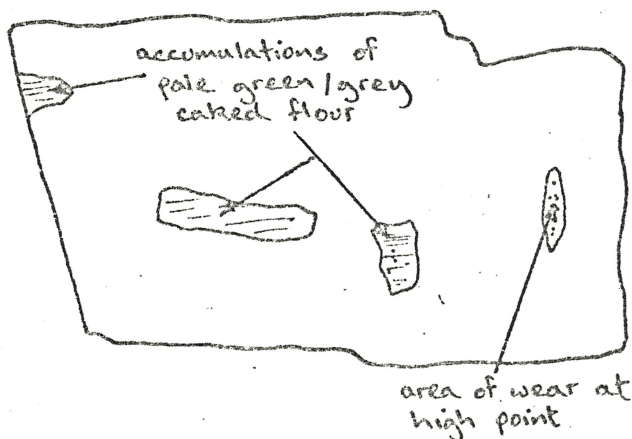 accumulations of
pale green/grey
caked flour
area of wear at
high point